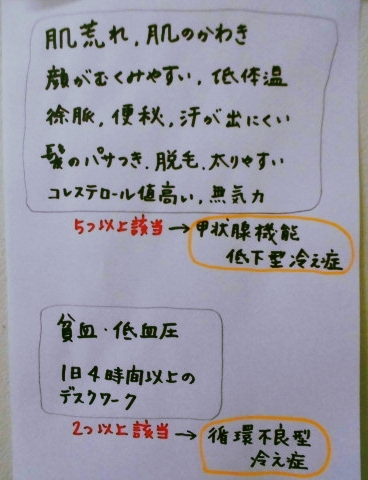 肌荒れ,肌のかわき
顔がむくみやすい,低体温
徐脈,便秘,汗が出にくい
髪のパサつき.脱毛.太りやすい
コレステロール値高い,無気力
5つ以上該当→甲状腺機能
低下型冷え症
貧血・低血圧
1日4時間以上の
デスクワーク
2つ以上該当→循環不良型
冷え症